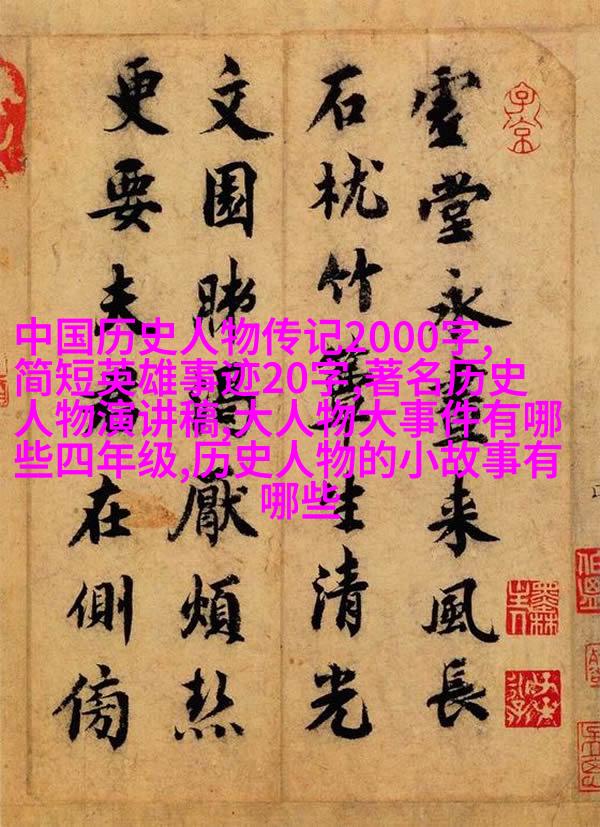 中国历史人物传记2000字,
简短英雄事迹20字,著名历史
人物演讲稿,大人物大事件有哪
些四年级,历史人物的小故事有
哪些
虛堂永晝來風長
石枕竹簟生清光
文園肺渴厭煩熱
更要夫在側傍